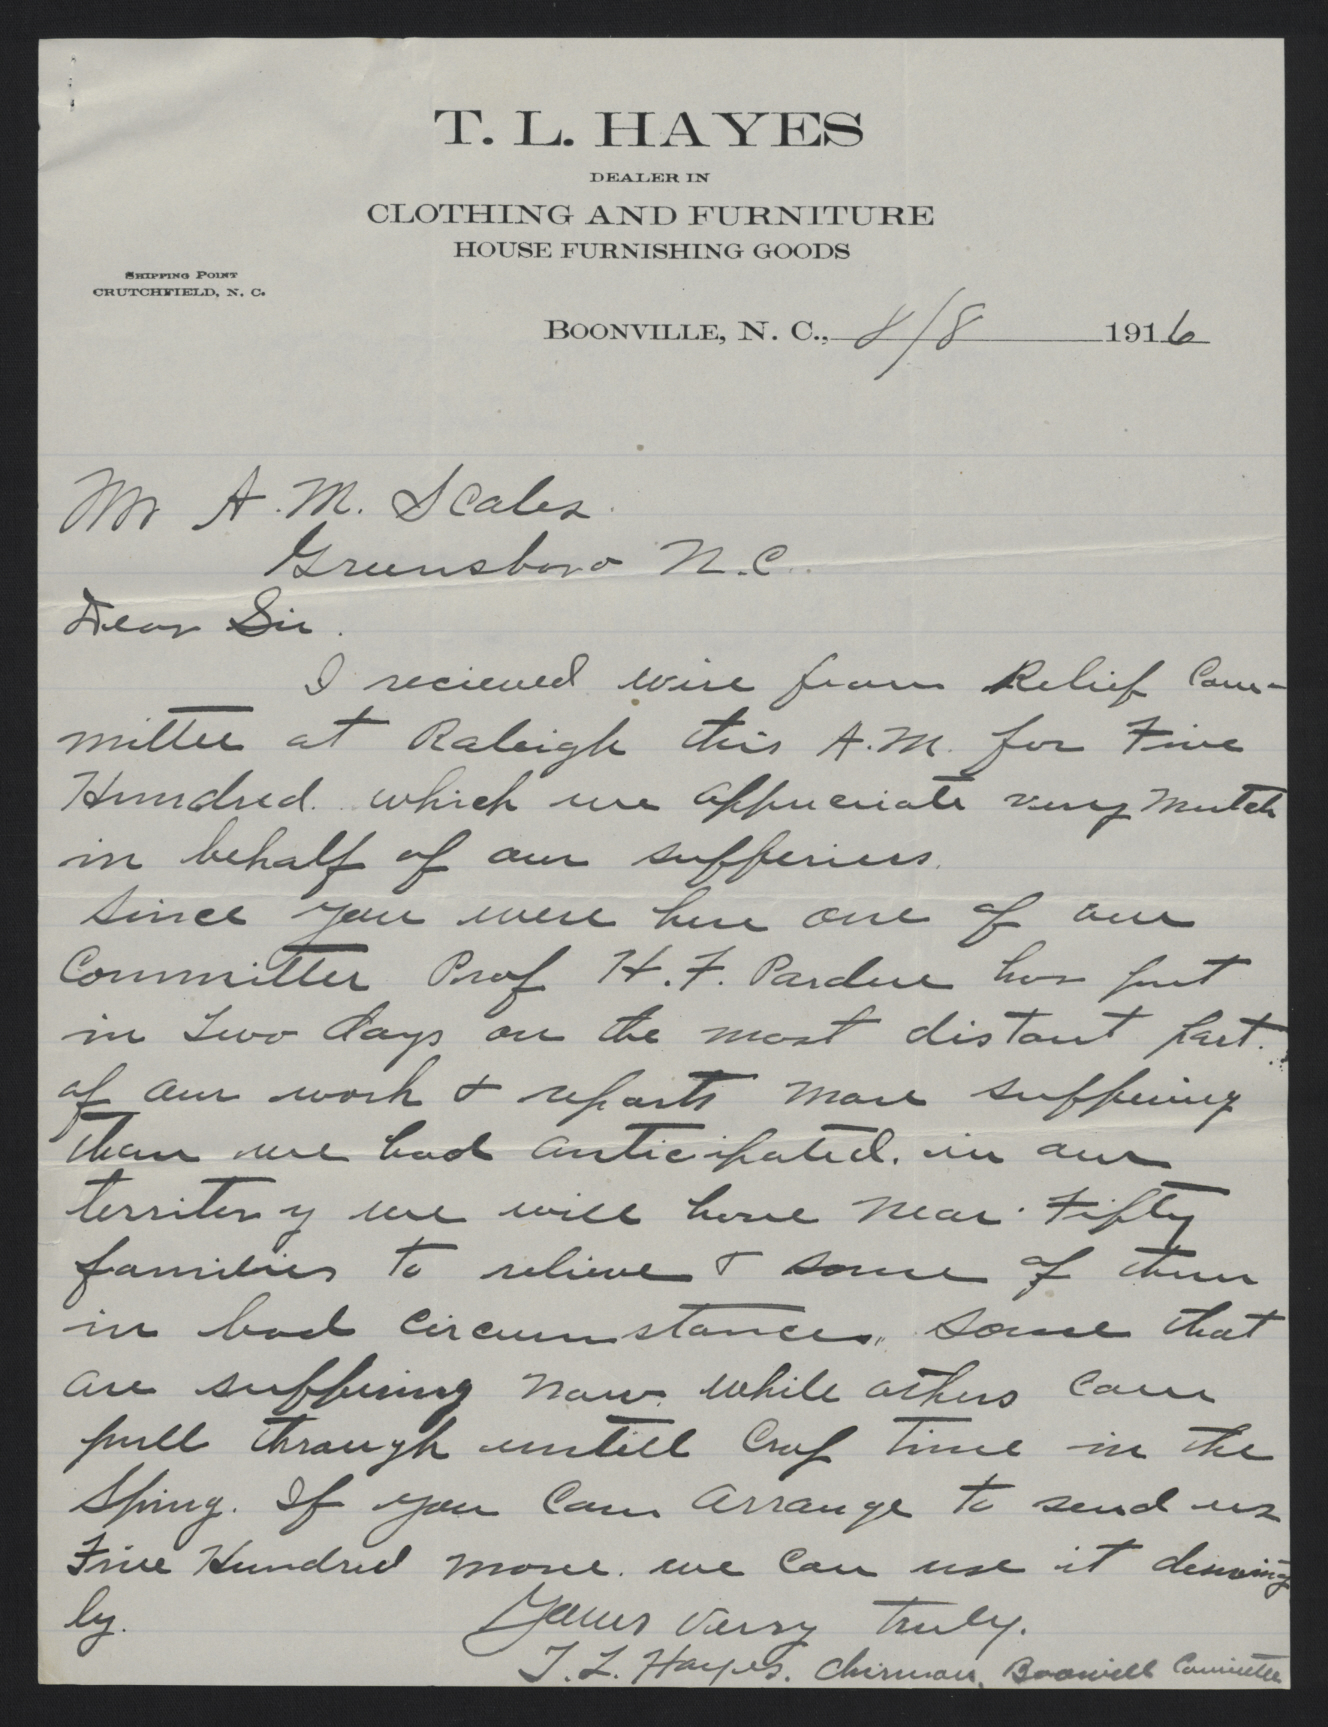 T. L. HAYES
DEALER IN
CLOTHING AND FURNITURE
HOUSE FURNISHING GOODS
SHIPPING POINT
CRUTCHFIELD, N. C.
BOONVILLE, N. C., 8/8 1916
Mr A. M. Scales.
Greensboro N.C..
Dear Sir.
I recieved wire from Relief Com-
mittee at Raleigh this A.M. for Five
Hundred. which we appreciate very mutch
in behalf of our sufferiers.
Since you were here one of our
Committee Prof H. F. Pardue has put
in two days on the most distant part.
of our work & reports more suffering
than we had anticipated. in our
territory we will have near Fifty
families to relieve & some of them
in bad circumstances, some that
are suffering now while others can
pull through untill Crop time in the
Spring. If you Can arrange to send us
Five Hundred more. we can use it deserving
ly.
Yours verry truly.
T. L. Hayes. Chirman, Boonvill Committee